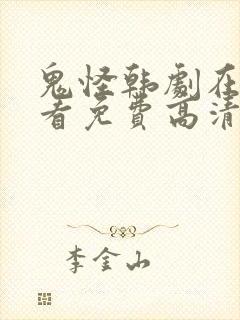 鬼怪韩劇在
看免費高清
李金山